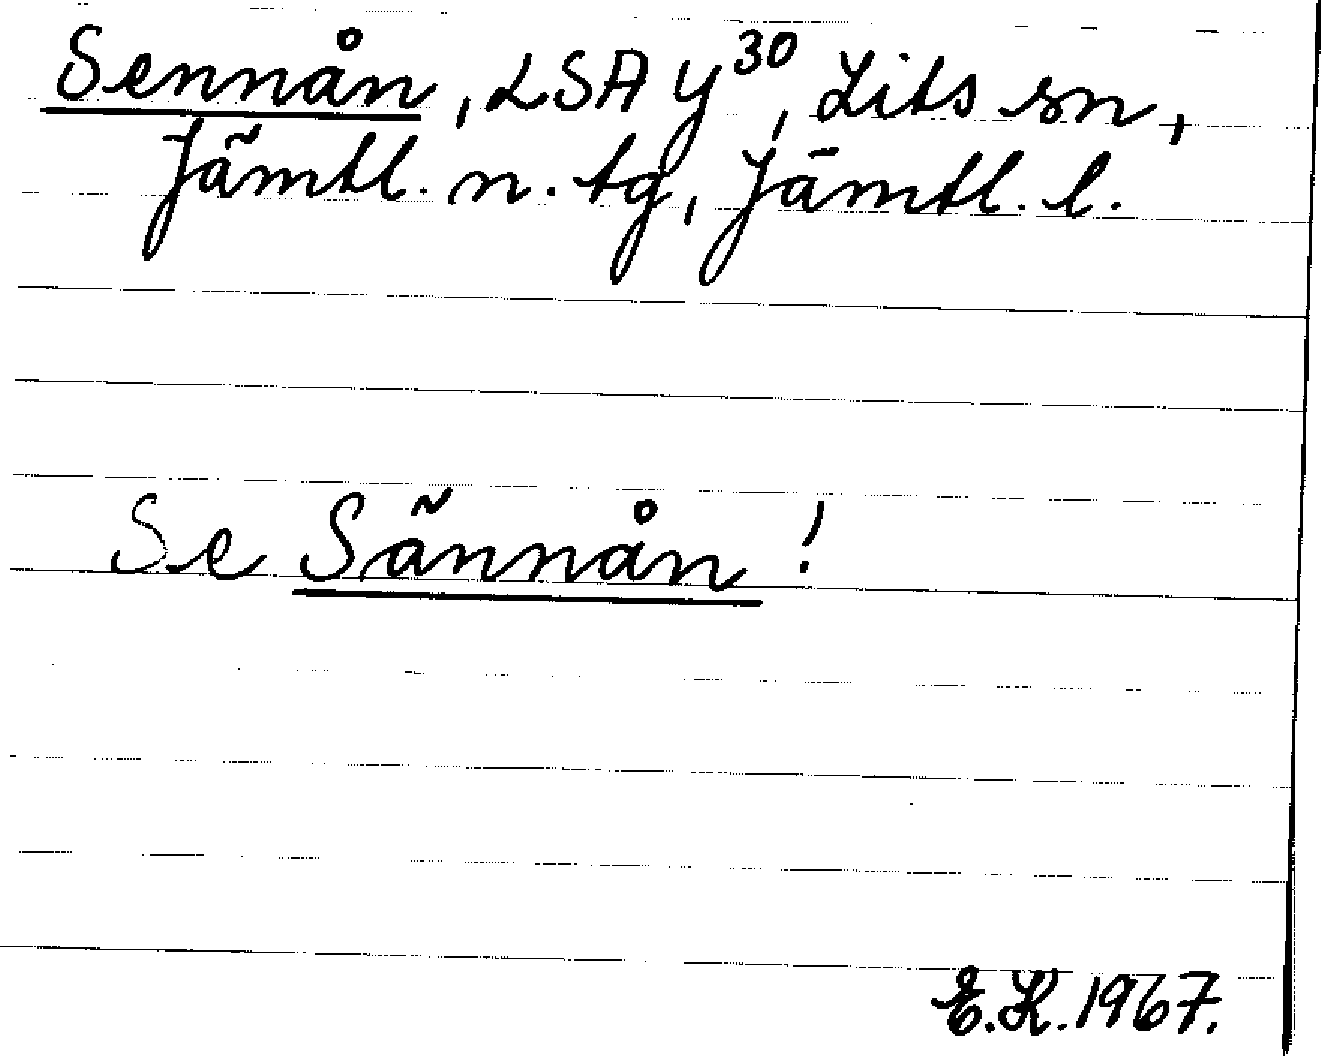 Sennån, LSA Y30, Lits sn,
Jämtl. n. tg, Jämtl. l.
Se Sännån!
E.K. 1967.